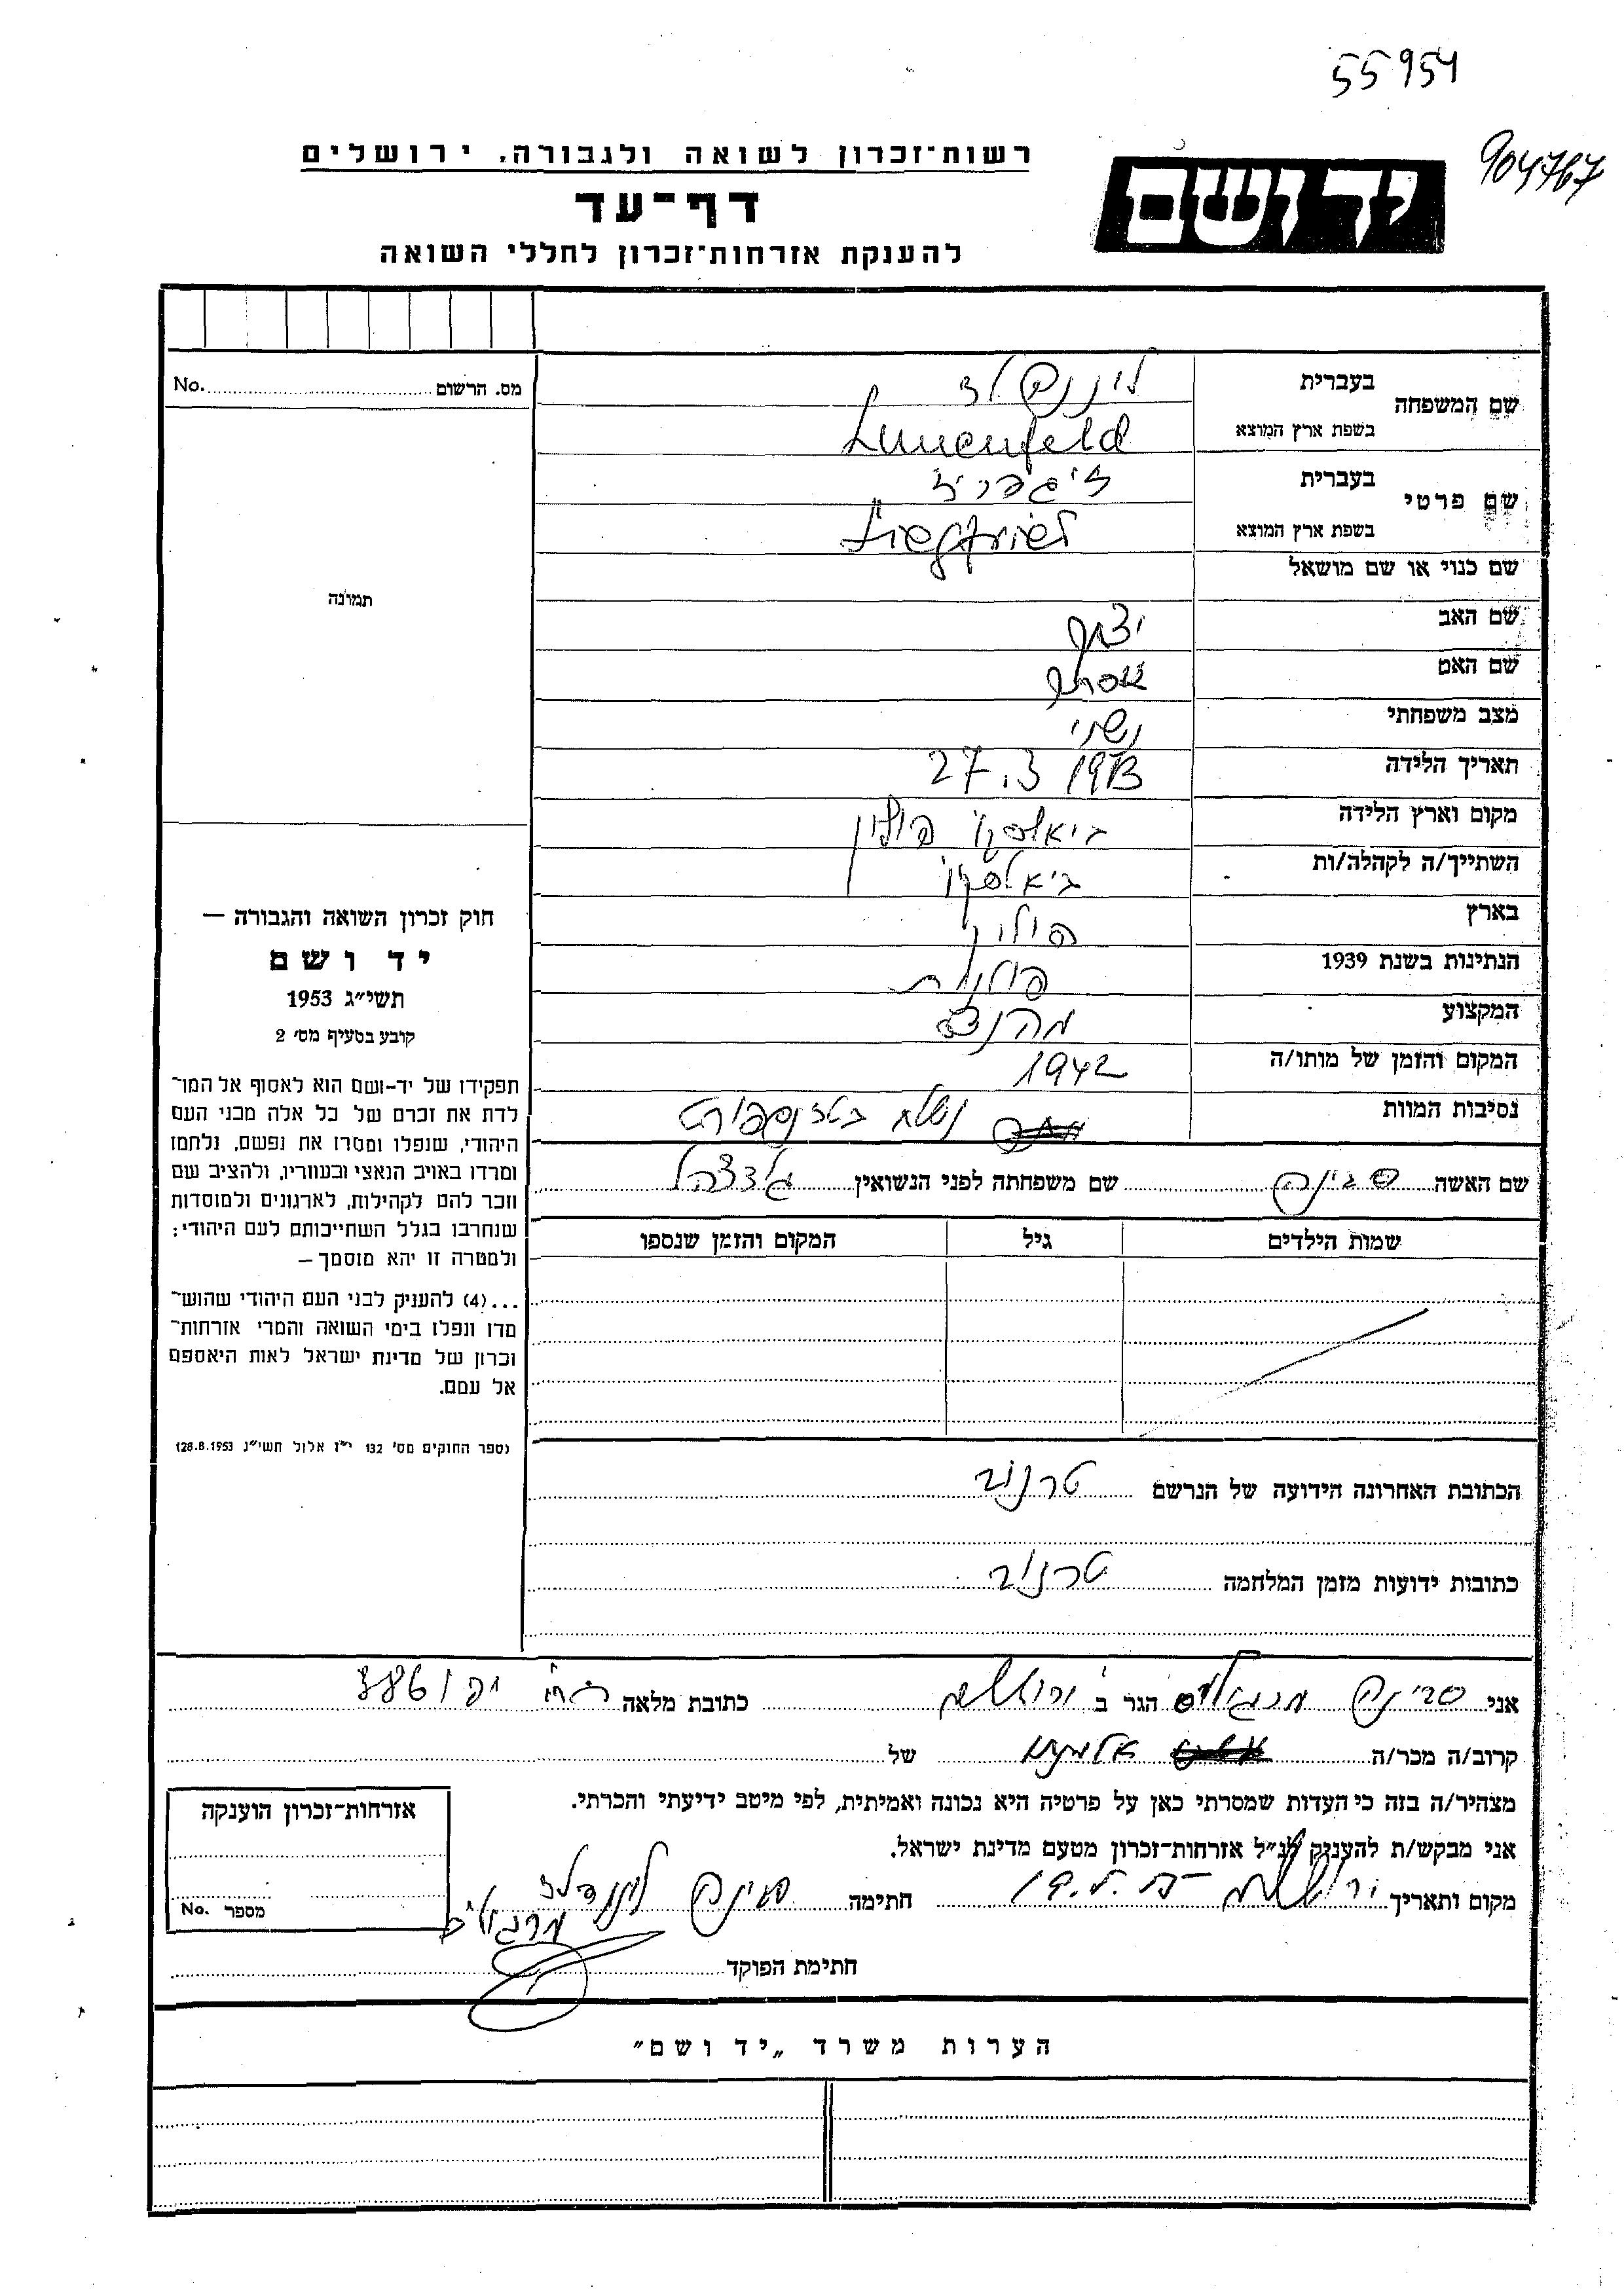 55954
904767
יד ושם
רשות־זכרון לשואה ולגבורה, ירושלים
דף־עד
להענקת אזרחות־זכרון לחללי השואה
מס. הרשום No.
תמונה
חוק זכרון השואה והגבורה —
יד ושם
תשי״ג 1953
קובע בסעיף מס׳ 2
תפקידו של יד-ושם הוא לאסוף אל המו־
לדת את זכרם של כל אלה מבני העם
היהודי, שנפלו ומסרו את נפשם, נלחמו
ומרדו באויב הנאצי ובעוזריו, ולהציב שם
וזכר להם לקהילות, לארגונים ולמוסדות
שנחרבו בגלל השתייכותם לעם היהודי;
ולמטרה זו יהא מוסמך —
...(4) להעניק לבני העם היהודי שהוש־
מדו ונפלו בימי השואה והמרי אזרחות־
זכרון של מדינת ישראל לאות היאספם
אל עמם.
(ספר החוקים מס׳ 132 י״ז אלול תשי״ג 28.8.1953)
שם המשפחה בעברית לינונפלד
בשפת ארץ המוצא Lunenfeld
שם פרטי בעברית זיגפריד
בשפת ארץ המוצא Siegfried
שם כנוי או שם מושאל
שם האב יצחק
שם האם אסתר
מצב משפחתי נשוי
תאריך הלידה 27.3 1913
מקום וארץ הלידה ביאלסקו פולין
השתייך/ה לקהלה/ות ביאלסקו
בארץ פולין
הנתינות בשנת 1939 פולנית
המקצוע מהנדס
המקום והזמן של מותו/ה 1942
נסיבות המוות נשלח בטרנספורט
שם האשה סבינה שם משפחתה לפני הנשואין
שמות הילדים גיל המקום והזמן שנספו
הכתובת האחרונה הידועה של הנרשם טרנוב
כתובות ידועות מזמן המלחמה טרנוב
אני סבינה מרגוליס הגר ב ירושלים כתובת מלאה רח׳ יפו 386
קרוב/ה מכר/ה אלמנתו של
מצהיר/ה בזה כי העדות שמסרתי כאן על פרטיה היא נכונה ואמיתית, לפי מיטב ידיעתי והכרתי.
אני מבקש/ת להעניק לנ״ל אזרחות־זכרון מטעם מדינת ישראל.
מקום ותאריך ירושלים חתימה סבינה לוננפלד
מרגוליס
חתימת הפוקד
אזרחות־זכרון הוענקה
מספר No.
הערות משרד „יד ושם״